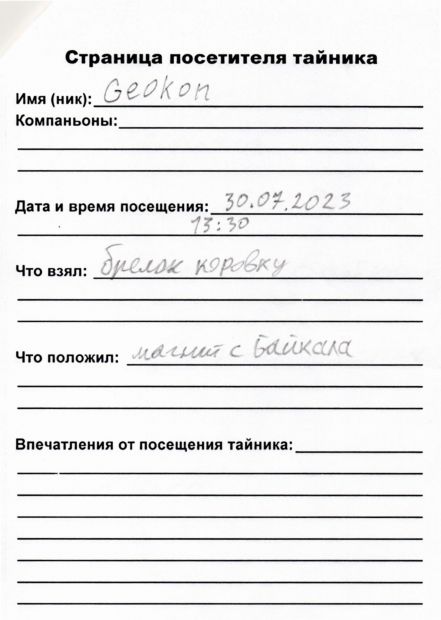 Страница посетителя тайника
Имя (ник): Geokon
Компаньоны:
Дата и время посещения: 30.07.2023
13:30
Что взял: брелок коровку
Что положил: магнит с Байкала
Впечатления от посещения тайника: